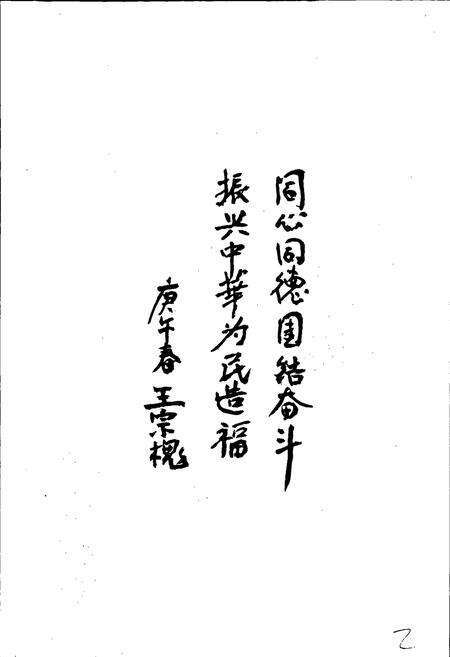 同心同德团结奋斗
振兴中華为民造福
庚午春 王宗槐